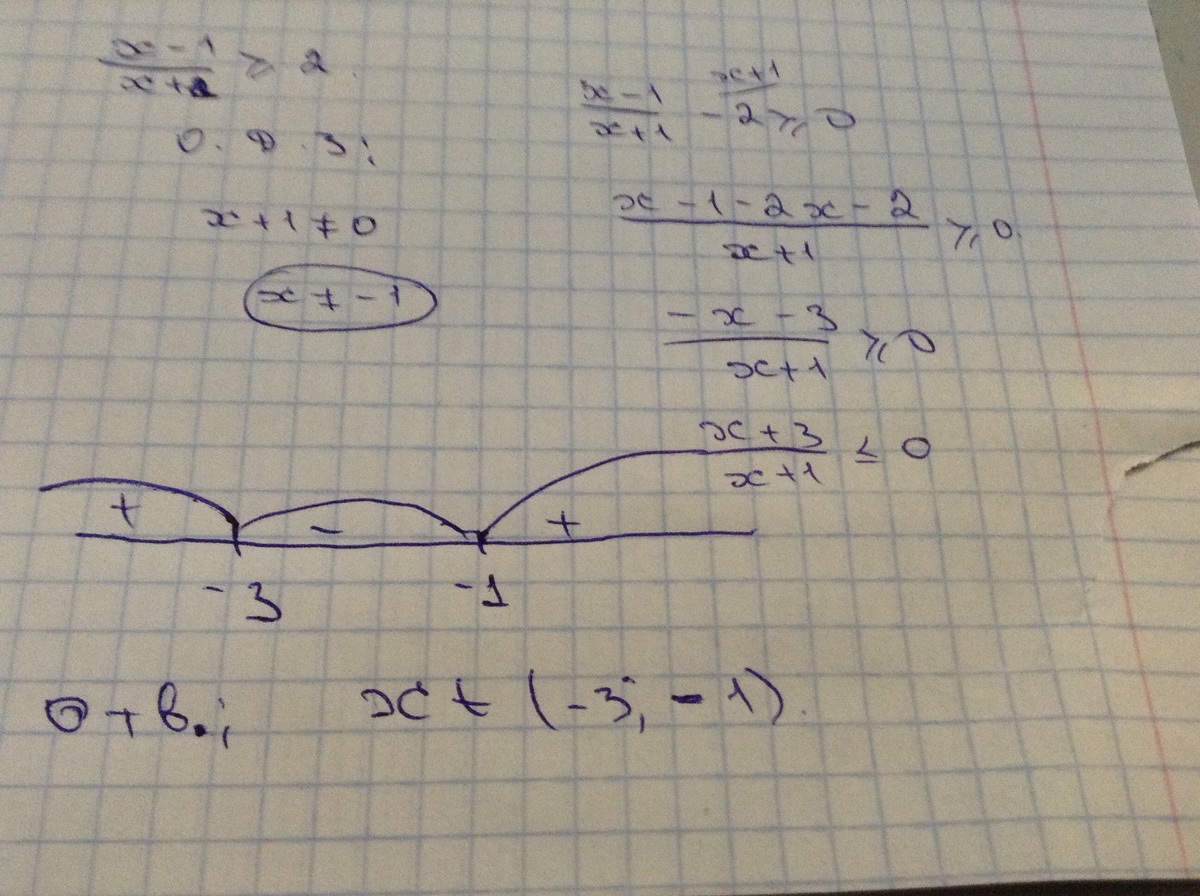 (x-1)/(x+1) ≥ 2.
О.Д.З;
x+1≠0
x≠-1
(x-1)/(x+1) - 2 ≥ 0 x+1
(x-1-2x-2)/(x+1) ≥ 0.
(-x-3)/(x+1) ≥ 0
(x+3)/(x+1) ≤ 0
+ - +
-3 -1
Отв.; x ∈ (-3; -1).